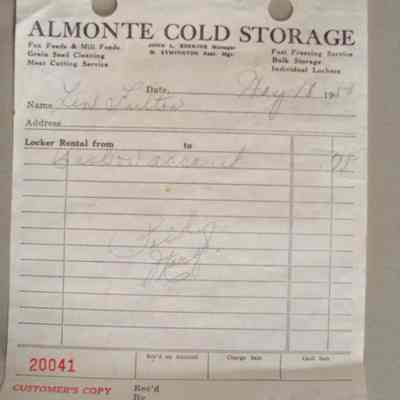 ALMONTE COLD STORAGE
Fox Feeds & Mill Feeds
Grain Seed Cleaning
Meat Cutting Service
JOHN L. ERSKINE Manager
M. SYMINGTON Asst. Mgr.
Fast Freezing Service
Bulk Storage
Individual Lockers
Date, May 18 195
Name Len Fulton
Address
Locker Rental from to
account .78
20041
Rec'd on Account
Charge Sale
Cash Sale
CUSTOMER'S COPY
Rec'd
By